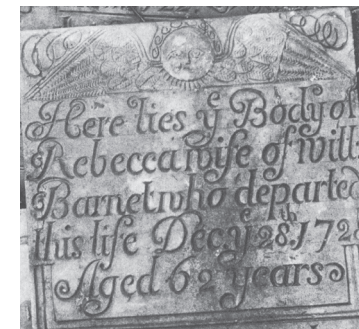 Here lies yͤ Body of
Rebecca wife of will:
Barnet who departed
this life Dec: yͤ 28ᵗʰ. 172
Aged 62 years